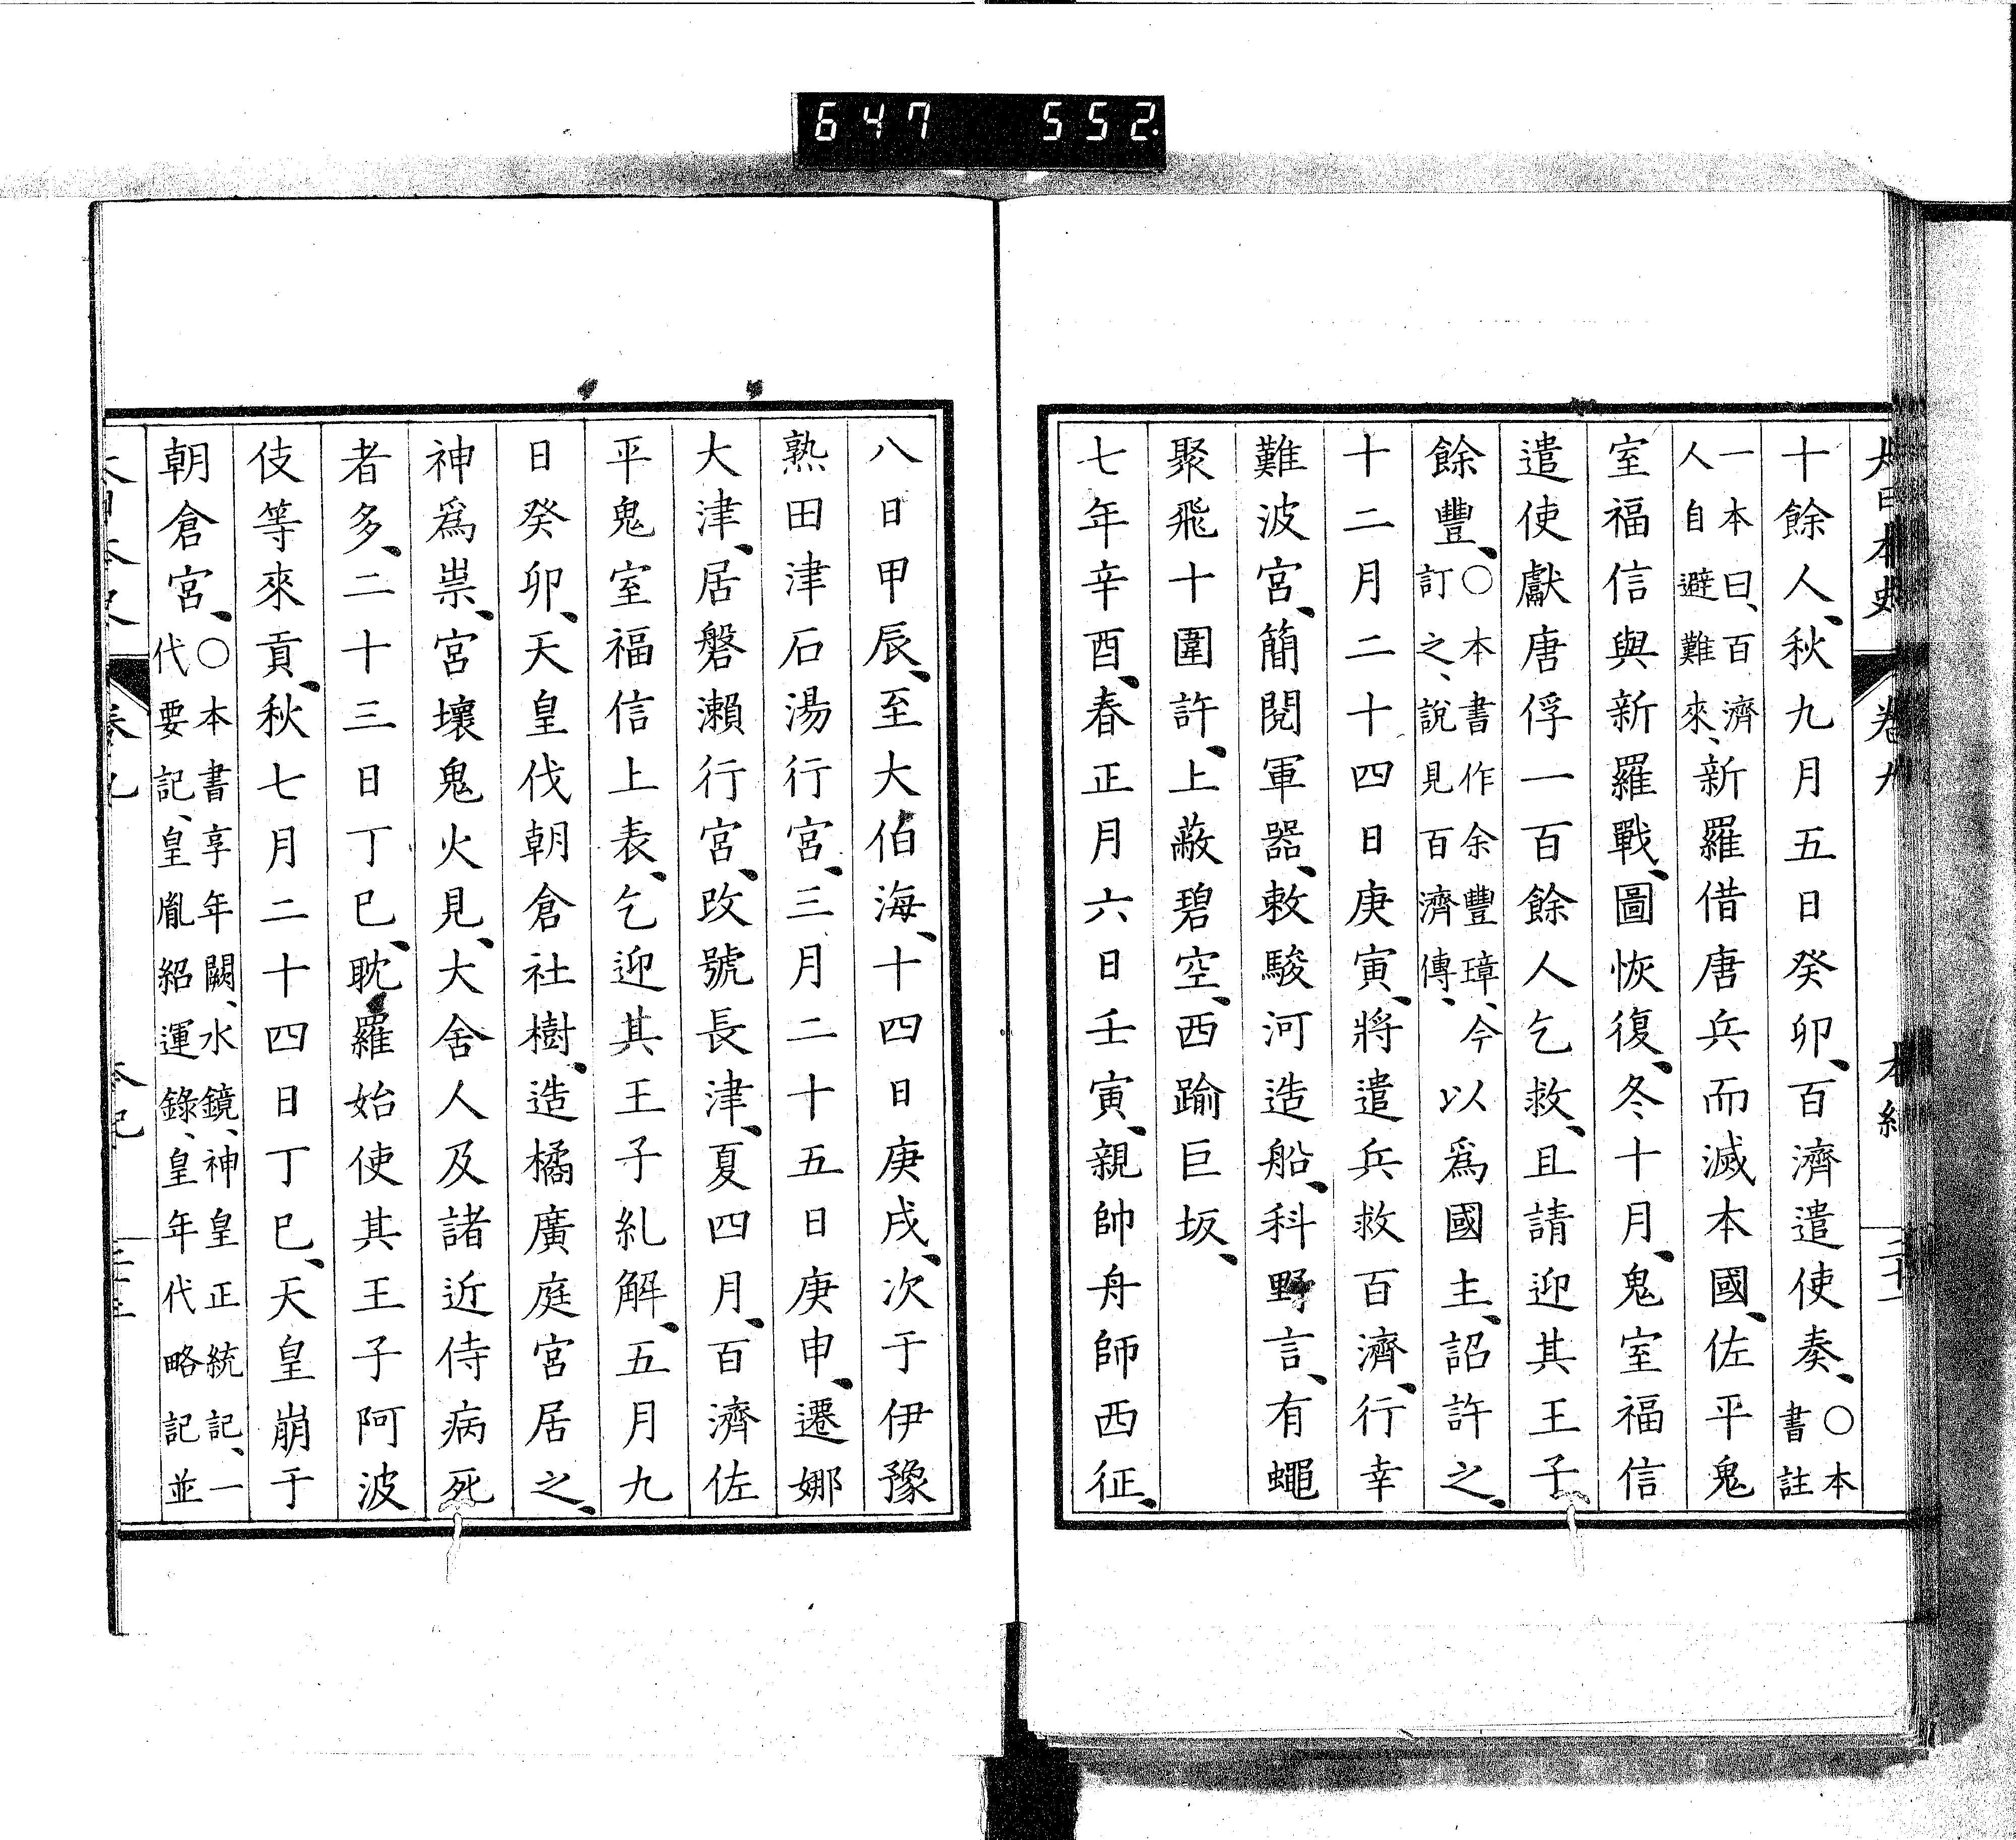 647 552.
大日本史 卷九 本紀
十餘人、秋九月五日癸卯、百濟遣使奏、○本書註
一本曰、百濟人自避難來、新羅借唐兵而滅本國、佐平鬼
室福信與新羅戰、圖恢復、冬十月、鬼室福信
遣使獻唐俘一百餘人乞救、且請迎其王子
餘豐、○本書作余豐璋、今訂之、說見百濟傳、以爲國主、詔許之、
十二月二十四日庚寅、將遣兵救百濟、行幸
難波宮、簡閱軍器、敕駿河造船、科野言、有蠅
聚飛十圍許、上蔽碧空、西踰巨坂、
七年辛酉、春正月六日壬寅、親帥舟師西征、
八日甲辰、至大伯海、十四日庚戌、次于伊豫
熟田津石湯行宮、三月二十五日庚申、遷娜
大津、居磐瀨行宮、改號長津、夏四月、百濟佐
平鬼室福信上表、乞迎其王子糺解、五月九
日癸卯、天皇伐朝倉社樹、造橘廣庭宮居之、
神爲祟、宮壞鬼火見、大舍人及諸近侍病死
者多、二十三日丁巳、耽羅始使其王子阿波
伎等來貢、秋七月二十四日丁巳、天皇崩于
朝倉宮、○本書享年闕、水鏡、神皇正統記、一代要記、皇胤紹運錄、皇年代略記並
卷九